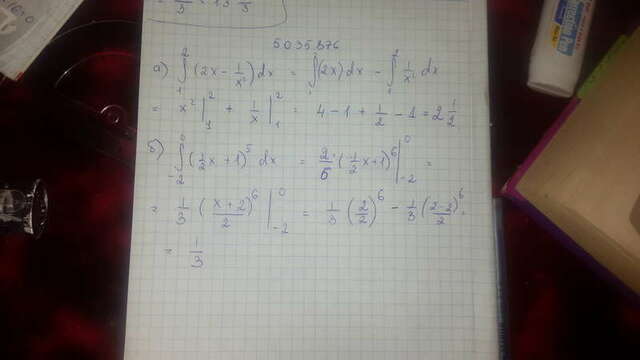 5035376
а) ∫₁² (2x - 1/x²) dx = ∫₁² (2x) dx - ∫₁² 1/x² dx
= x² |₁² + 1/x |₁² = 4 - 1 + 1/2 - 1 = 2 1/2
б) ∫₋₂⁰ (1/2 x + 1)⁵ dx = 2/6 · (1/2 x + 1)⁶ |₋₂⁰ =
= 1/3 ((x + 2)/2)⁶ |₋₂⁰ = 1/3 (2/2)⁶ - 1/3 ((2-2)/2)⁶ =
= 1/3